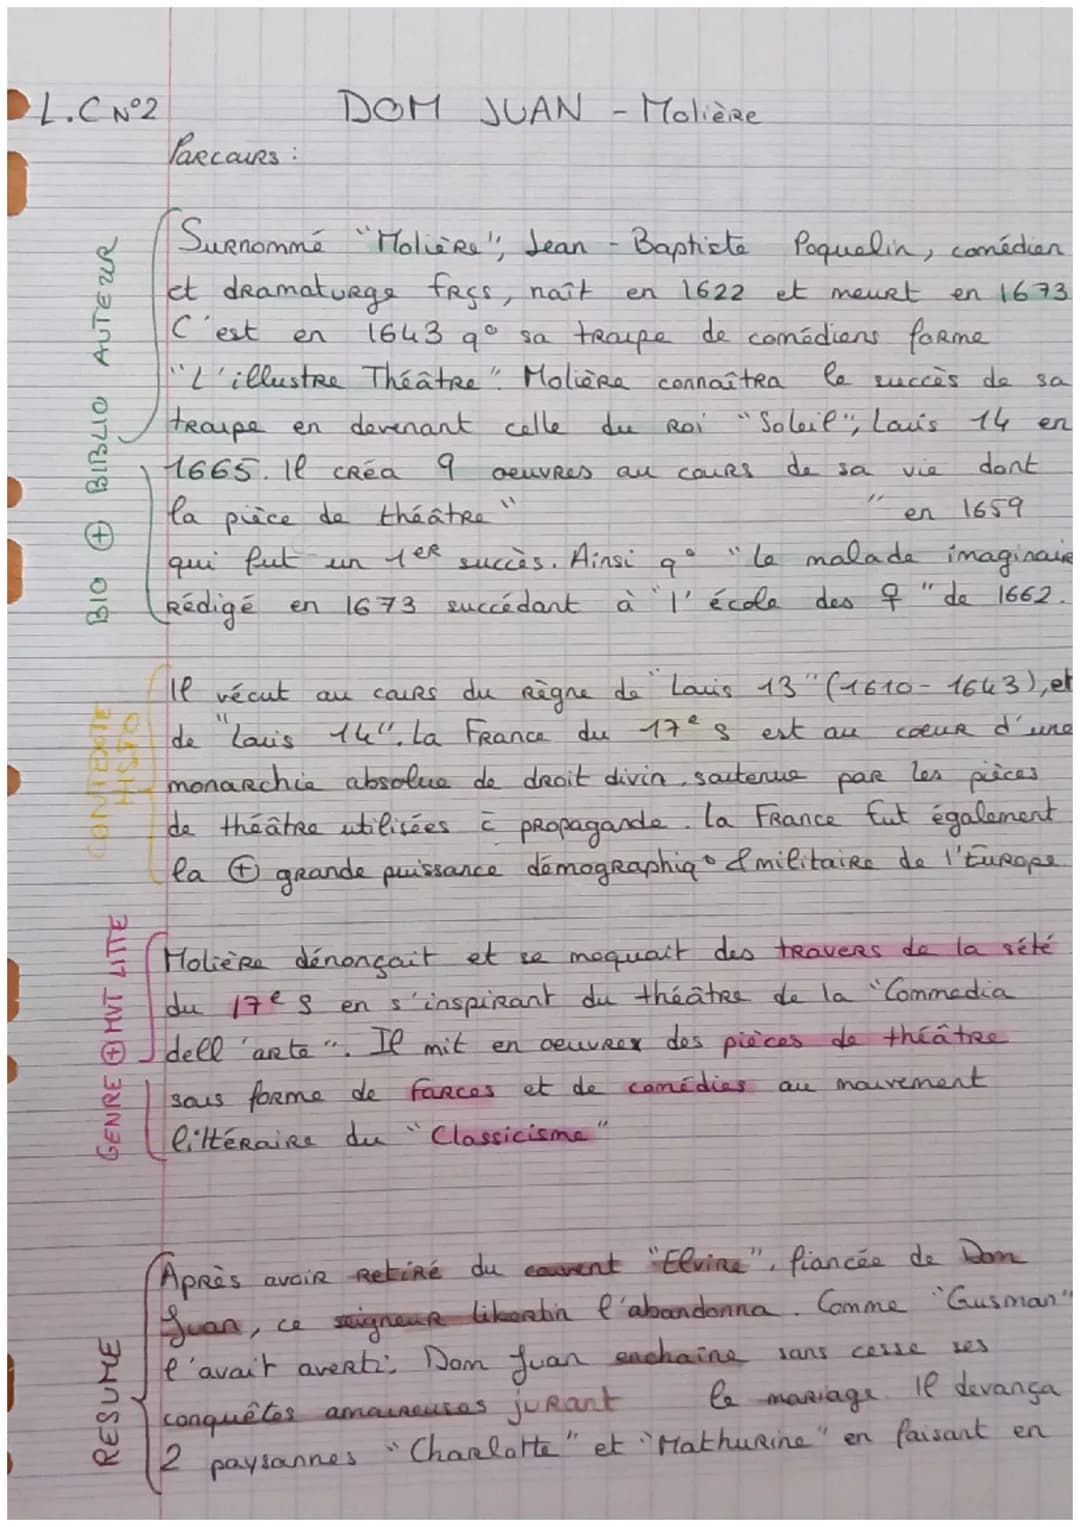 L.C N°2
DOM JUAN - Molière
Parcours :
BIO ⊕ BIBLIO AUTEUR
Surnommé "Molière", Jean - Baptiste Poquelin, comédien
et dramaturge frçs, naît en 1622 et meurt en 1673
C'est en 1643 q° sa troupe de comédiens forme
"L'illustre Théâtre". Molière connaîtra le succès de sa
troupe en devenant celle du Roi "Soleil", Louis 14 en
1665. Il créa 9 oeuvres au cours de sa vie dont
la pièce de théâtre " " en 1659
qui fut un 1er succès. Ainsi q° "le malade imaginaire
Rédigé en 1673 succédant à "l'école des ♀" de 1662.
CONTEXTE
HISTO
Il vécut au cours du Règne de "Louis 13" (1610-1643), et
de "Louis 14". La France du 17e s est au coeur d'une
monarchie absolue de droit divin, soutenue par les pièces
de théâtre utilisées c̄ propagande. La France fut également
la ⊕ grande puissance démographiq° & militaire de l'Europe
GENRE ⊕ MVT LITTE
Molière dénonçait et se moquait des travers de la sété
du 17e s en s'inspirant du théâtre de la "Commedia
dell'arte". Il mit en oeuvrex des pièces de théâtre
sous forme de farces et de comédies au mouvement
littéraire du "Classicisme"
RESUME
Après avoir Retiré du couvent "Elvire", fiancée de Dom
Juan, ce seigneur libertin l'abandonna. Comme "Gusman"
l'avait averti, Dom Juan enchaîne sans cesse ses
conquêtes amoureuses jurant le mariage. Il devança
2 paysannes "Charlotte" et "Mathurine" en faisant en